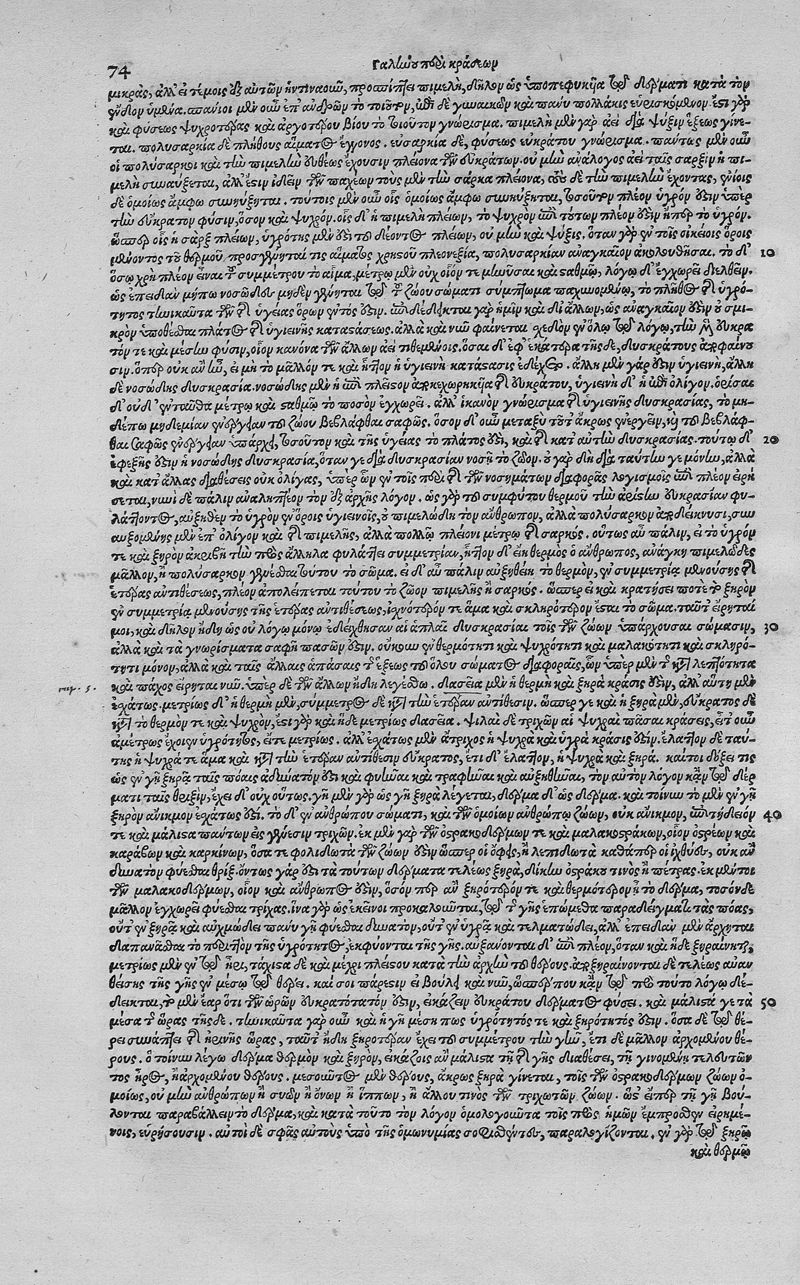 74
Γαλίωοῦ περὶ κράσεων
μικρὰς, ἀλλ' εἰ τέμοις ἐξ αὐτῶν ἡντιναοῦν, προσπίπτει πιμελὴ, δῆλον ὡς ὑποπεφυκῆα τῷ δέρματι κατὰ τὸν
ἔνδον ὑμένα. σπάνιοι μὲν οὖν ἐπ' ἀνδρῶν τὸ τοιοῦτον, ἐπὶ δὲ γυναικῶν καὶ πάνυ πολλάκις εὑρισκόμενον. ἔστι γὰρ
καὶ φύσεως ψυχροτέρας καὶ ἀργοτέρου βίου τὸ τοιοῦτον γνώρισμα. πιμελὴ μὲν γὰρ ἀεὶ διὰ ψύξιν ἕξεως γίνε-
ται. πολυσαρκία δὲ πλήθους αἵματος ἔγγονος. εὐσαρκία δὲ, φύσεως εὐκράτου γνώρισμα. πάντως μὲν οὖν
οἱ πολύσαρκοι καὶ τὴν πιμελὴν εὐθέως ἔχουσιν πλείονα τῶν εὐκράτων. οὐ μὴν ἀνάλογος ἀεὶ ταῖς σαρξὶν ἡ πι-
μελὴ συναύξεται, ἀλλ' ἔστιν ἰδεῖν τῶν παχέων τοὺς μὲν τὴν σάρκα πλείονα, τοὺς δὲ τὴν πιμελὴν ἔχοντας, ἐνίοις
δὲ ὁμοίως ἄμφω συνηύξηται. τούτοις μὲν οὖν οἷς ὁμοίως ἄμφω συνηύξηνται, τοσοῦτον πλέον ὑγρόν ἐστιν ὑπὲρ
τὴν εὔκρατον φύσιν, ὅσον καὶ ψυχρόν. οἷς δ' ἡ πιμελὴ πλείων, τὸ ψυχρὸν ἐπὶ τούτων πλέον ἐστὶν ἤπερ τὸ ὑγρόν.
ὥσπερ οἷς ἡ σὰρξ πλείων, ὑγρότης μὲν ἐστι τοῦ δέοντος πλείων, οὐ μὴν καὶ ψύξις. ὅταν γὰρ ἐν τοῖς οἰκείοις ὅροις
μένοντος τοῦ θερμοῦ, προσγένηται τις αἵματος χρηστοῦ πλεονεξία, πολυσαρκίαν ἀναγκαῖον ἀκολουθῆσαι. τὸ δ' 10
ὅσῳ χρὴ πλέον εἶναι τοῦ συμμέτρου τὸ αἷμα, μέτρῳ μὲν οὐχ οἷόν τε μηνῦσαι καὶ σταθμῷ, λόγῳ δ' ἐγχωρεῖ διελθεῖν.
ὡς ἐπειδὰν μήπω νοσῶδες μηδὲν γένηται τῷ τοῦ ζώου σώματι σύμπτωμα παχυνομένῳ, τὸ πλῆθος τῆς ὑγρό-
τητος τηνικαῦτα τῶν τῆς ὑγείας ὅρων ἐντός ἐστιν. ἐπιδέδεικται γὰρ ἡμῖν καὶ δι' ἄλλων, ὡς ἀναγκαῖόν ἐστιν ὁ σμι-
κρὸν ὑποθέσθαι πλάτος τῆς ὑγιεινῆς κατασάσεως. ἀλλὰ καὶ νῦν φαίνεται σχεδὸν ἐν ὅλῳ τῷ λόγῳ, τὴν μὲν εὔκρα
τόν τε καὶ μέσην φύσιν, οἷον κανόνα τῶν ἄλλων ἀεὶ τιθεμένοις. ὅσαι δ' ἐφ' ἑκάτερα τῆσδε, δυσκράτους ἀποφαίνου
σιν. ὅπερ οὐκ ἂν ἦν, εἰ μὴ τὸ μᾶλλόν τε καὶ ἧττον ἡ ὑγιεινὴ κατάσασις ἐδέχετο. ἄλλη μὲν γάρ ἐστιν ὑγιεινὴ, ἄλλη
δὲ νοσώδης δυσκρασία. νοσώδης μὲν ἡ ἐπὶ πλεῖστον ἀποκεχωρηκῆα τῆς εὐκράτου, ὑγιεινὴ δ' ἡ ἐπ' ὀλίγον. ὁρίσαι
δ' οὐδ' ἐνταῦθα μέτρῳ καὶ σταθμῷ τὸ ποσὸν ἐγχωρεῖ. ἀλλ' ἱκανὸν γνώρισμα τῆς ὑγιεινῆς δυσκρασίας, τὸ μη-
δέπω μηδεμίαν ἐνέργειαν τοῦ ζώου βεβλάφθαι σαφῶς. ὅσον δ' οὖν μεταξὺ τοῦτ' ἄκρως ἐνεργεῖν, καὶ τοῦ βεβλάφ-
θαι σαφῶς ἐνέργειαν ὑπάρχῃ, τοσοῦτον καὶ τῆς ὑγείας τὸ πλάτος ἐστὶ, καὶ τῆς κατ' αὐτὴν δυσκρασίας. τούτῳ δ' 20
ἐφεξῆς ἐστιν ἡ νοσώδης δυσκρασία, ὅταν γε διὰ δυσκρασίαν νοσῇ τὸ ζῶον. οὐ γὰρ δὴ διὰ ταύτην γε μόνην, ἀλλὰ
καὶ κατ' ἄλλας διαθέσεις οὐκ ὀλίγας, ὑπὲρ ὧν ἐν τοῖς περὶ τῆς τῶν νοσημάτων διαφορᾶς λογισμοῖς ἐπὶ πλέον εἰρή
σεται, νυνὶ δὲ πάλιν ἀναληπτέον τὸν ἐξ ἀρχῆς λόγον. ὡς γὰρ τοῦ συμφύτου θερμοῦ τὴν ἀρίστην εὐκρασίαν φυ-
λάττοντος, αὐξηθὲν τὸ ὑγρὸν ἐν ὅροις ὑγιεινοῖς, οὐ πιμελώδη τὸν ἄνθρωπον, ἀλλὰ πολύσαρκον ἀποδείκνυσι, συν
αυξομένης μὲν ἐπ' ὀλίγον καὶ τῆς πιμελῆς, ἀλλὰ πολλῷ πλείονι μέτρῳ τῆς σαρκός. οὕτως αὖ πάλιν, εἰ τὸ ὑγρόν
τε καὶ ξηρὸν ἀκριβῆ τὴν πρὸς ἄλληλα φυλάττει συμμετρίαν, ἧττον δ' εἴη θερμὸς ὁ ἄνθρωπος, ἀνάγκη πιμελῶδες
μᾶλλον, ἢ πολύσαρκον γενέσθαι τούτου τὸ σῶμα. εἰ δ' αὖ πάλιν αὐξηθείη τὸ θερμὸν, ἐν συμμετρίᾳ μενούσης τῆς
ἑτέρας ἀντιθέσεως, πλέον ἀπολείπεται τούτου τὸ ζῶον πιμελῆς ἢ σαρκός. ὥσπερ εἰ καὶ κρατήσει ποτὲ τὸ ξηρὸν
ἐν συμμετρίᾳ μενούσης τῆς ἑτέρας ἀντιθέσεως, ἰσχνότερόν τε ἅμα καὶ σκληρότερον ἔσται τὸ σῶμα. ταῦτ' εἴρηταί
μοι, καὶ δῆλον ἤδη ὡς οὐ λόγῳ μόνῳ ἐδείχθησαν αἱ ἁπλαῖ δυσκρασίαι τοῖς τῶν ζώων ὑπάρχουσαι σώμασιν, 30
ἀλλὰ καὶ τὰ γνωρίσματα σαφῆ πασῶν ἐστιν. οὔκουν ἐν θερμότητι καὶ ψυχρότητι καὶ μαλακότητι καὶ σκληρό-
τητι μόνον, ἀλλὰ καὶ ταῖς ἄλλαις ἁπάσαις τῆς ἕξεως τοῦ ὅλου σώματος διαφοραῖς, ὧν ὑπὲρ μὲν τῆς κατὰ λεπτότητα
καὶ πάχος εἴρηται νῦν. ὑπὲρ δὲ τῶν ἄλλων ἤδη λεγέσθω. δασεῖα μὲν ἡ θερμὴ καὶ ξηρὰ κρᾶσις ἐστιν, ἀλλ' αὕτη μὲν
ἐσχάτως. μετρίως δ' ἡ θερμὴ μὲν, σύμμετρος δὲ κατὰ τὴν ἑτέραν ἀντίθεσιν. ὥσπερ γε καὶ ἡ ξηρὰ μὲν, εὔκρατος δὲ
κατὰ τὸ θερμόν τε καὶ ψυχρὸν, ἔστι γὰρ καὶ ἥδε μετρίως δασεῖα. ψιλαὶ δὲ τριχῶν αἱ ψυχραὶ πᾶσαι κράσεις, εἴτ' οὖν
ἀμέτρως ἔχοιεν ὑγρότητος, εἴτε μετρίως. ἀλλ' ἐσχάτως μὲν ἄτριχος ἡ ψυχρὰ καὶ ὑγρὰ κρᾶσις ἐστιν. ἔλαττον δὲ ταύ-
της ἡ ψυχρά τε ἅμα καὶ κατὰ τὴν ἑτέραν ἀντίθεσιν εὔκρατος, ἔτι δ' ἔλαττον, ἡ ψυχρὰ καὶ ξηρά. καίτοι δόξει τις
ὡς ἐν γῇ ξηρᾷ ταῖς πόαις ἀδύνατόν ἐστι καὶ φυῆναι καὶ τραφῆναι καὶ αὐξηθῆναι, τὸν αὐτὸν λόγον κἀν τῷ δέρ
ματι ταῖς θριξὶν, ἔχει δ' οὐχ οὕτως. γῆ μὲν γὰρ ὡς γῆ ξηρὰ λέγεται, δέρμα δ' ὡς δέρμα. καὶ τοίνυν τὸ μὲν ἐν γῇ
ξηρὸν ἄνικμον ἐσχάτως ἐστὶ. τὸ δ' ἐν ἀνθρώπου σώματι, καὶ τῶν ὁμοίων ἀνθρώπῳ ζώων, οὐκ ἄνικμον, ἐπιτήδειόν 40
τε καὶ μάλιστα πάντων εἰς γένεσιν τριχῶν. ἐκ μὲν γὰρ τῶν ὀστρακοδέρμων τε καὶ μαλακοστράκων, οἷον ὀστρέων καὶ
καράβων καὶ καρκίνων, ὅσα τε φολιδωτὰ τῶν ζώων ἐστὶν ὥσπερ οἱ ὄφεις, ἢ λεπιδωτὰ καθάπερ οἱ ἰχθύες, οὐκ ἂν
δύναιτον φύεσθαι θρίξ. ὄντως γάρ ἐστι τὰ τούτων δέρματα τελέως ξηρὰ, δίκην ὀστράκου τινὸς ἢ πέτρας. ἐκ μέντοι
τῶν μαλακοδέρμων, οἷον καὶ ἄνθρωπος ἐστιν, ὅσον περ ἂν ξηρότερόν τε καὶ θερμότερον ᾖ τὸ δέρμα, τοσόνδε
μᾶλλον ἐγχωρεῖ φύεσθαι τρίχας. ἵνα γὰρ ὡς ἐκεῖνοι προκαλοῦνται, τῷ τῆς γῆς ἑπώμεθα παραδείγματι τὰς πόας,
οὔτ' ἐν ξηρᾷ καὶ αὐχμώδει πάνυ γῇ φύεσθαι δυνατὸν, οὔτ' ἐν ὑγρᾷ καὶ τελματώδει, ἀλλ' ἐπειδὰν μὲν ἄρχηται
δαπανᾶσθαι τὸ περιττὸν τῆς ὑγρότητος, ἐκφύονται τῆς γῆς. αὐξάνονται δ' ἐπὶ πλέον, ὅταν καὶ ἥδε ξηραίνηται,
μετρίως μὲν ἐν τῷ ἦρι, τάχιστα δὲ καὶ μέχρι πλείστου κατὰ τὴν ἀρχὴν τοῦ θέρους. ἀποξηραίνονται δὲ τελέως αὐαν
θείσης τῆς γῆς ἐν μέσῳ τῷ θέρει. καί σοι πάρεστιν εἰ βούλῃ καὶ νῦν, ὥσπερ οὖν κἀν τῷ πρὸ τούτου λόγῳ δέ-
δεικται, τὸ μὲν ἔαρ ὅτι τῶν ὡρῶν εὐκρατότατόν ἐστιν, εἰκάζειν εὐκράτου δέρματος φύσει. καὶ μάλιστά γε τὰ 50
μέσα τῆς ὥρας τῆσδε. τηνικαῦτα γὰρ οὖν καὶ ἡ γῆ μέση πως ὑγρότητός τε καὶ ξηρότητός ἐστιν. ὅσα δὲ τῷ θέ-
ρει συνάπτει τῆς ἠρινῆς ὥρας, ταῦτ' ἤδη ξηροτέραν ἔχει τοῦ συμμέτρου τὴν γῆν, ἔτι δὲ μᾶλλον ἀρχομένου θέ-
ρους. ὃ τοίνυν λέγω δέρμα θερμὸν καὶ ξηρὸν, εἰκάζοις ἂν μάλιστα τῇ τῆς γῆς διαθέσει, τῇ γινομένῃ τελευτῶν
τος ἦρος, ἢ ἀρχομένου θέρους. μεσοῦντος μὲν θέρους, ἄκρως ξηρὰ γίνεται, τοῖς τῶν ὀστρακοδέρμων ζώων ὁ-
μοίως, οὐ μὴν ἀνθρώπων ἢ συῶν ἢ ὄνων ἢ ἵππων, ἢ ἄλλου τινὸς τῶν τριχωτῶν ζώων. ὡς εἴπερ τῇ γῇ βού-
λονται παραβάλλειν τὸ δέρμα, καὶ κατὰ τοῦτο τὸν λόγον ὁμολογοῦντα τοῖς πρὸς ἡμῶν ἔμπροσθεν εἰρημέ-
νοις, εὑρήσουσιν. αὐτοὶ δὲ σφᾶς αὐτοὺς ὑπὸ τῆς ὁμωνυμίας σοφισθέντες, παραλογίζονται. ἐν γὰρ τῷ ξηρῷ
καὶ θερμῷ